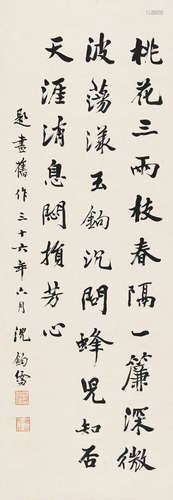 桃花三兩枝春隔一簾深微
波蕩漾玉鉤沉問蜂兒知否
天涯消息悶損芳心
題畫舊作三十六年六月 沈鈞儒